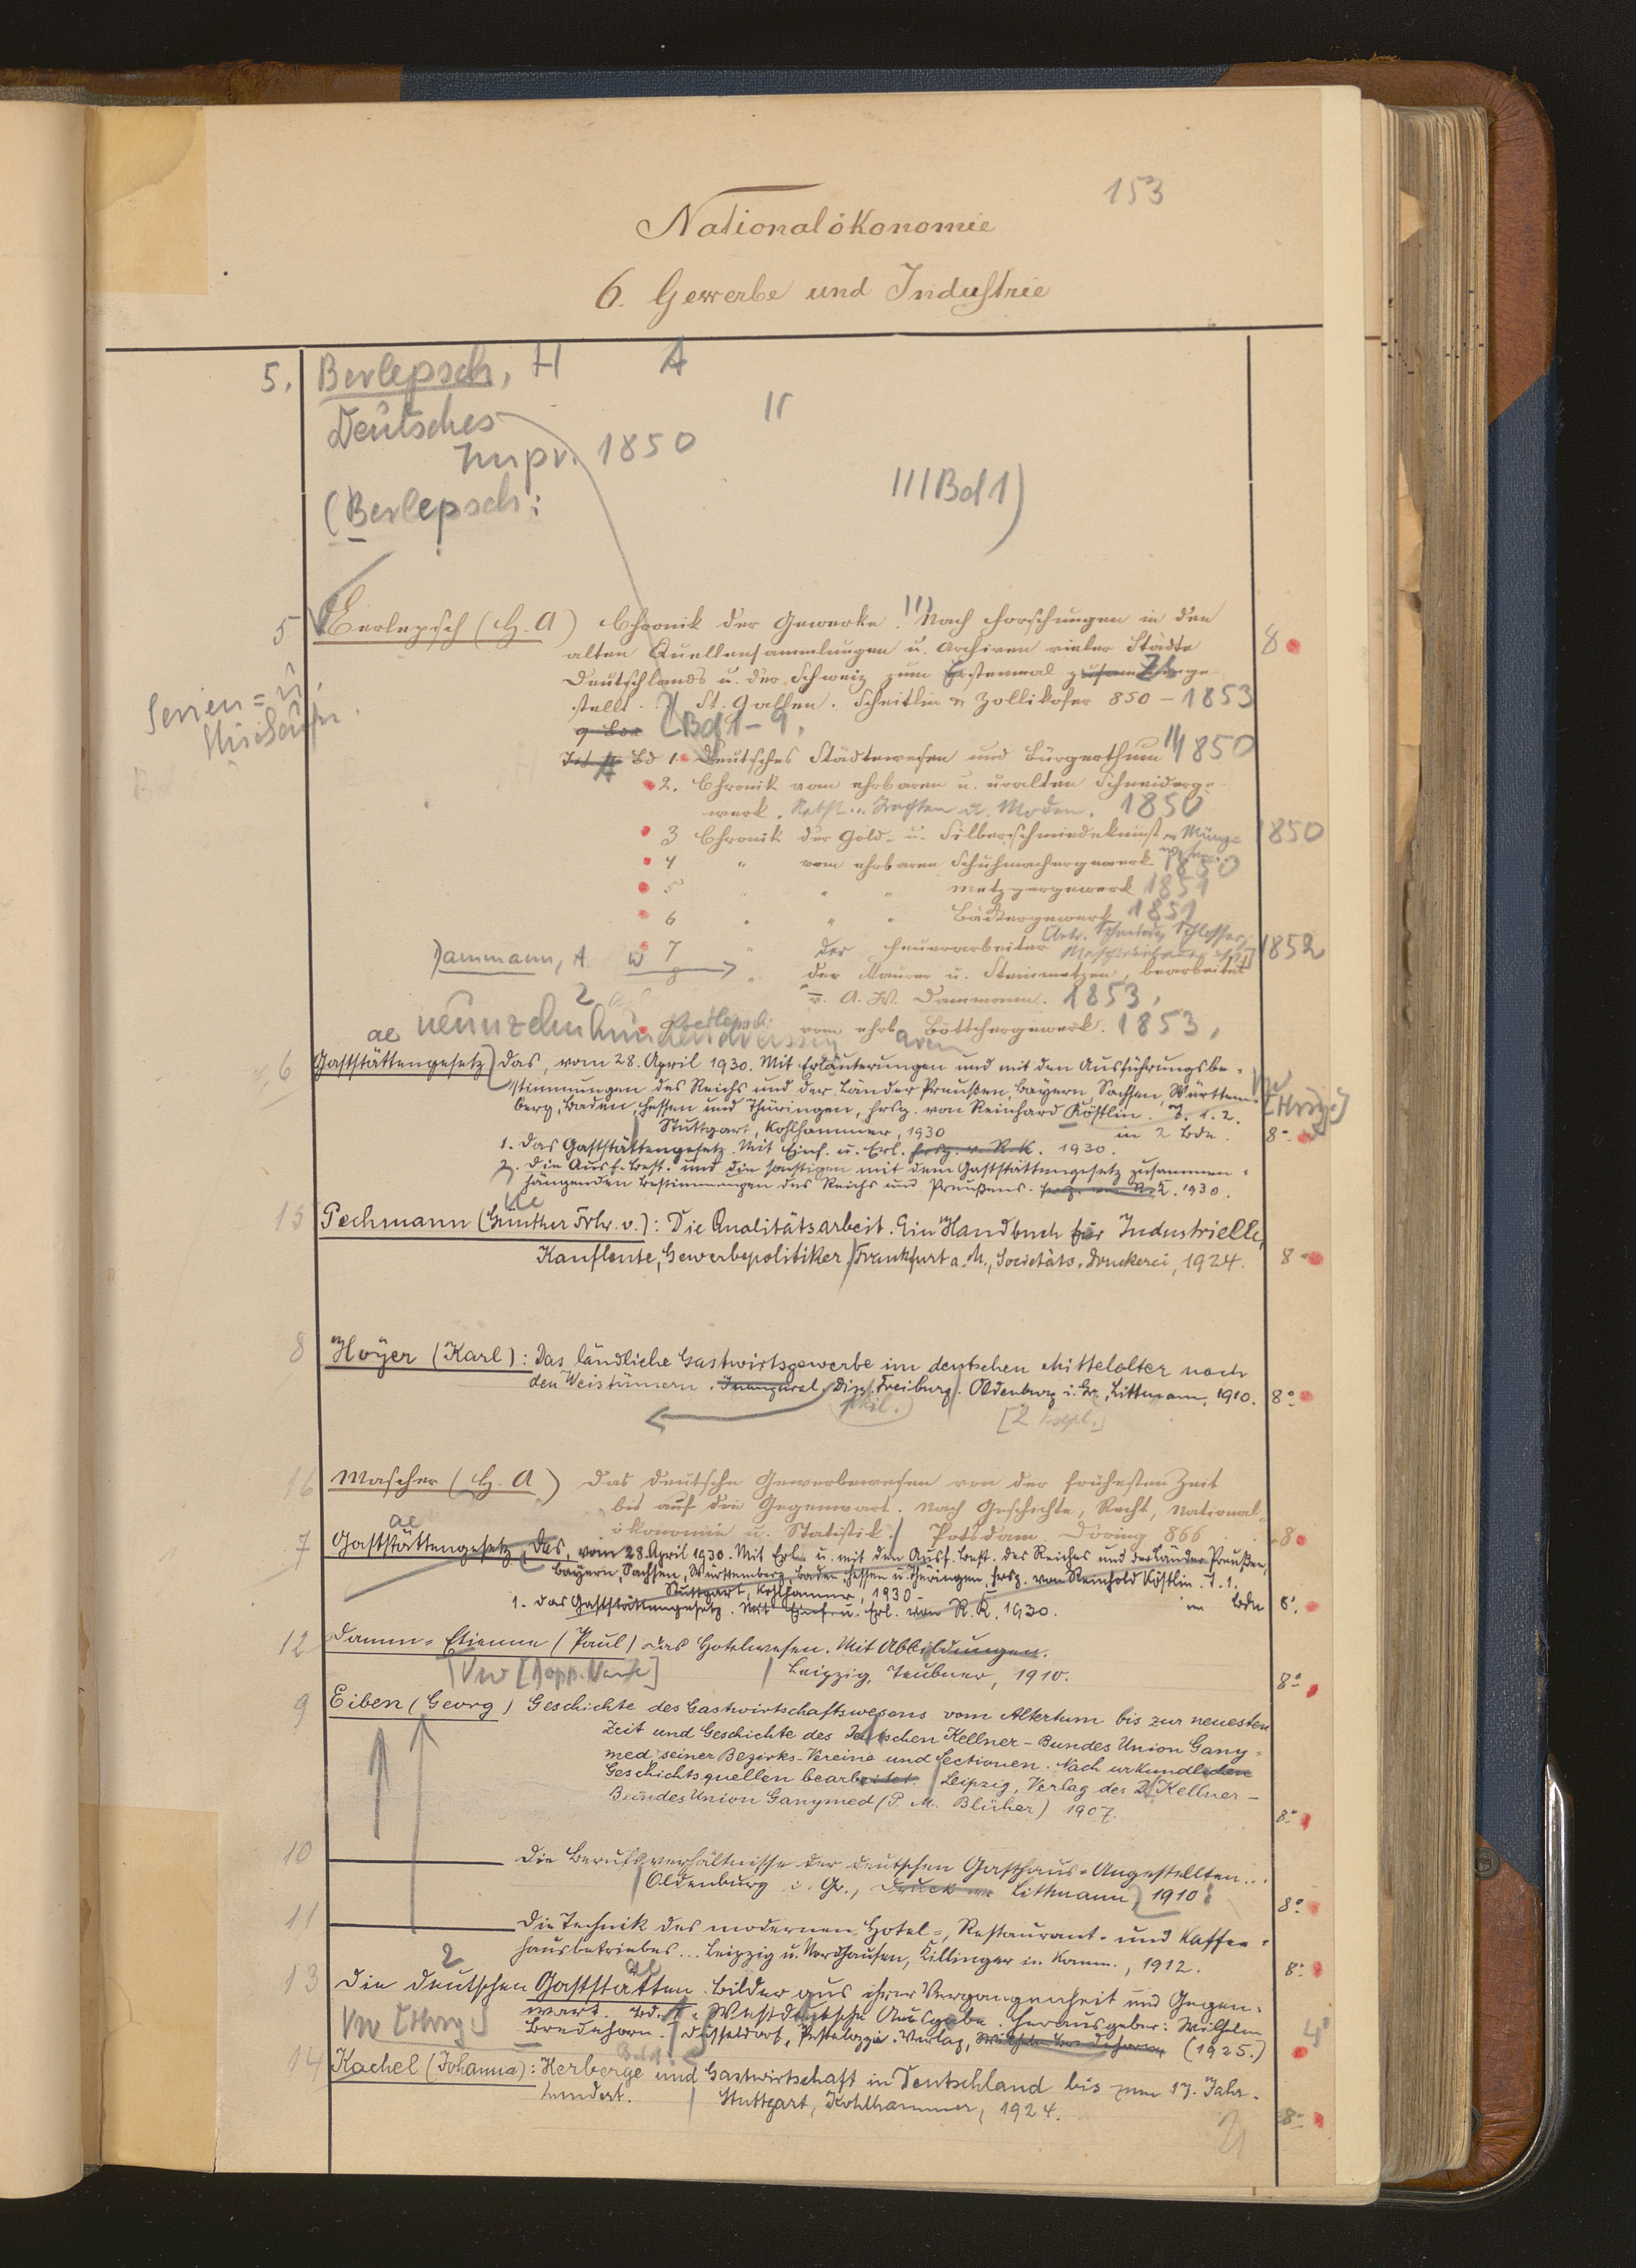 153
Nationalökonomie
6. Gewerbe und Industrie
5. Berlepsch, H A
Deutsches 11
Impr. 1850
(Berlepsch: III Bd 1)
5 Berlepsch (H. A) Chronik der Gewerke. Nach Forschungen in den
alten Quellensammlungen u. Archiven vieler Städte 8
Deutschlands u. der Schweiz zum Erstenmal zusammenge
stellt. St. Gallen. Scheitlin & Zollikofer 850 - 1853
9 Bde [Bd 1-9.
Serien=
Bd 1. Deutsches Städtewesen und Bürgerthum 1850
2. Chronik vom ehrbaren u. uralten Schneiderge-
werk. Nebst .. Trachten u. Moden. 1850
3 Chronik der Gold- u. Silberschmiedekunst Münz= 1850
4 " vom ehrbaren Schuhmachergewerk 1850
5 " " " Metzgergewerk 1851
6 " " " Bäckergewerk 1851
7 " der Feuerarbeiter Schlosser 1852
Dammann, A W 8 " der Maurer u. Steinmetzen, bearbeitet
v. A. W. Dammann. 1853.
9 Berlepsch: vom ehrb. Böttchergewerk. 1853.
2 ae neunzehnhundertdreissig
6 Gaststättengesetz, das, vom 28. April 1930. Mit Erläuterungen und mit den Ausführungsbe-
stimmungen des Reichs und der Länder Preußen, Bayern, Sachsen, Württem- Vw
berg, Baden, Hessen und Thüringen, hrsg. von Reinhard Köstlin. T. 1. 2. [Hrsg.]
Stuttgart, Kohlhammer, 1930 in 2 Bdn. 8°
1. Das Gaststättengesetz. Mit Einf. u. Erl. hrsg. v. R. K. 1930.
2. Die Ausf.-Best. und die sonstigen mit dem Gaststättengesetz zusammen-
hängenden Bestimmungen des Reichs und Preußens. hrsg. von R. K. 1930.
15 Pechmann (Günther Frhr. v.): Die Qualitätsarbeit. Ein Handbuch für Industrielle,
Kaufleute, Gewerbepolitiker. Frankfurt a. M., Societäts-Druckerei, 1924. 8°
8 Hoyer (Karl): Das ländliche Gastwirtsgewerbe im deutschen Mittelalter nach
den Weistümern. Inaugural-Diss. Freiburg. Oldenburg i. Gr., Littmann, 1910. 8°
phil. [2 Expl.]
16 Mascher (H. A) Das deutsche Gewerbewesen von der frühesten Zeit
bis auf die Gegenwart. Nach Geschichte, Recht, National-
ökonomie u. Statistik. Potsdam. Döring 866 8
ae
7 Gaststättengesetz, Das, vom 28. April 1930. Mit Erl. u. mit den Ausf. Best. des Reiches und der Länder Preußen,
Bayern, Sachsen, Württemberg, Baden, Hessen u. Thüringen, hrsg. von Reinhold Köstlin. T. 1.
Stuttgart, Kohlhammer, 1930 - in Bdn 8°
1. Das Gaststättengesetz. Mit Einf. u. Erl. von R. K. 1930.
12 Damm-Etienne (Paul) Das Hotelwesen. Mit Abbildungen.
Vw [Dopp. Verf.] Leipzig, Teubner, 1910. 8°
9 Eiben (Georg) Geschichte des Gastwirtschaftswesens vom Altertum bis zur neuesten
Zeit und Geschichte des Deutschen Kellner-Bundes Union Gany-
med, seiner Bezirks-Vereine und Sectionen. Nach urkundlichen
Geschichtsquellen bearbeitet. Leipzig, Verlag des D. Kellner-
Bundes Union Ganymed (P. M. Blüher) 1907. 8°
10 Die Berufsverhältnisse der deutschen Gasthaus-Angestellten...
Oldenburg i. Gr., Druck von Littmann, 1910. 8°
11 Die Technik des modernen Hotel-, Restaurant- und Kaffee-
hausbetriebes... Leipzig u. Nordhausen, Killinger in Komm., 1912. 8°
2 ae
13 Die deutschen Gaststätten. Bilder aus ihrer Vergangenheit und Gegen-
wart. Bd. 1. Westdeutsche Ausgabe. Herausgeber: Wilhelm
Vw [Hrsg.] Bredehorn. Düsseldorf, Pestalozzi-Verlag, Wilhelm Bredehorn (1925.) 4°
Bd 1.
14 Kachel (Johanna): Herberge und Gastwirtschaft in Deutschland bis zum 17. Jahr-
hundert. Stuttgart, Kohlhammer, 1924. 8°